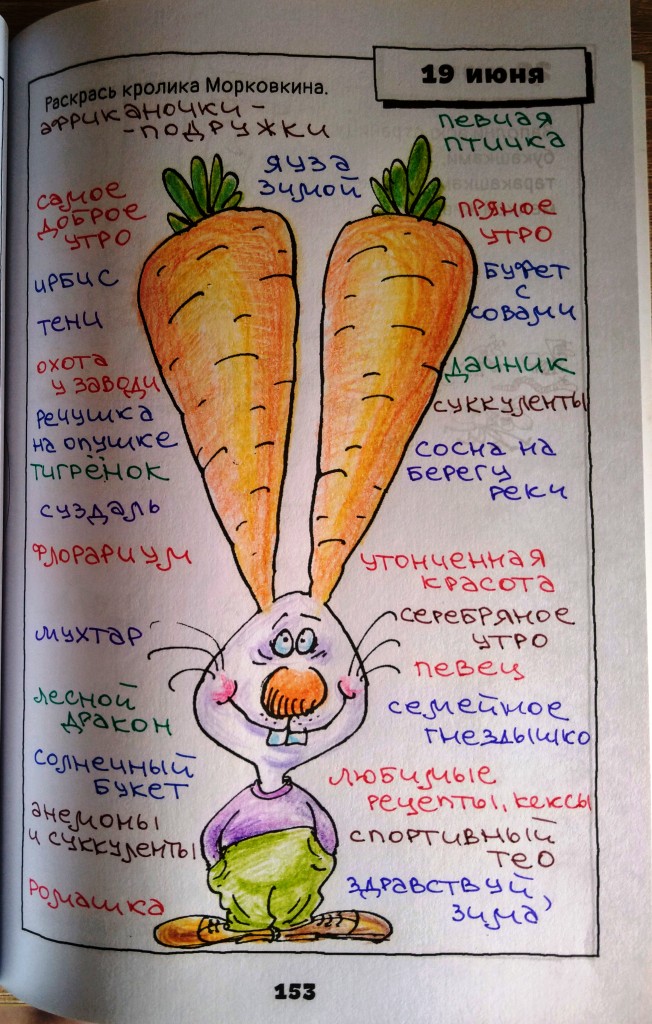 19 июня
Раскрась кролика Морковкина.
африканочки -
- подружки
певчая
птичка
Яуза
зимой
самое
доброе
утро
пряное
утро
ирбис
буфет
с
совами
тени
охота
у заводи
дачник
суккуленты
речушка
на опушке
сосна на
берегу
реки
тигрёнок
суздаль
флорариум
утонченная
красота
серебряное
утро
мухтар
певец
лесной
дракон
семейное
гнездышко
солнечный
букет
любимые
рецепты, кексы
анемоны
и суккуленты
спортивный
тео
ромашка
здравствуй,
зима
153